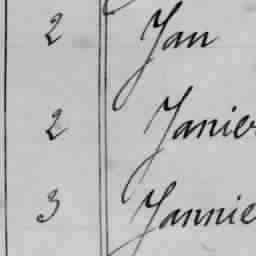 2 Jan
2 Janier
3 Jannie